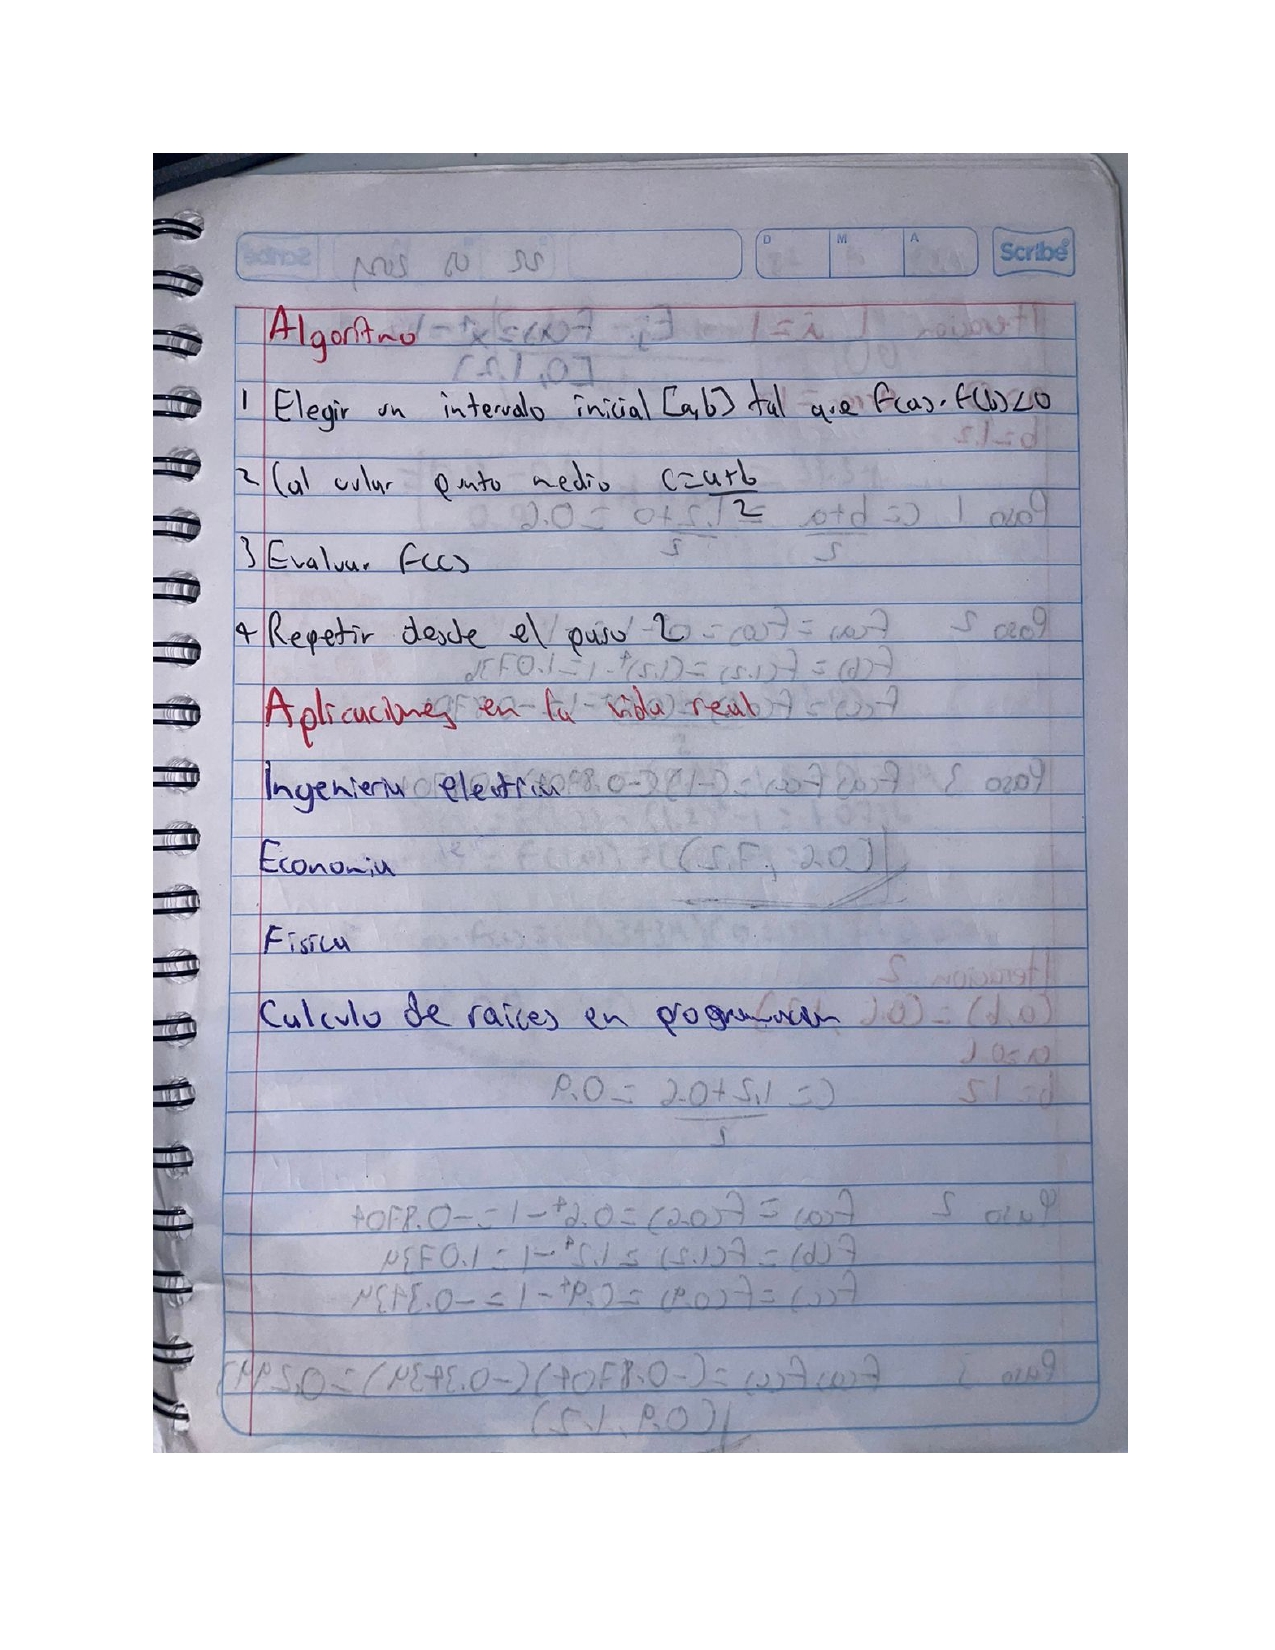 D M A Scribe
Algoritmo
1 Elegir un intervalo inicial [a,b] tal que f(a)·f(b)<0
2 Calcular punto medio c=a+b
2
3 Evaluar F(c)
4 Repetir desde el paso 2
Aplicaciones en la vida real
Ingenieria electrica
Economia
Fisica
Calculo de raices en programacion